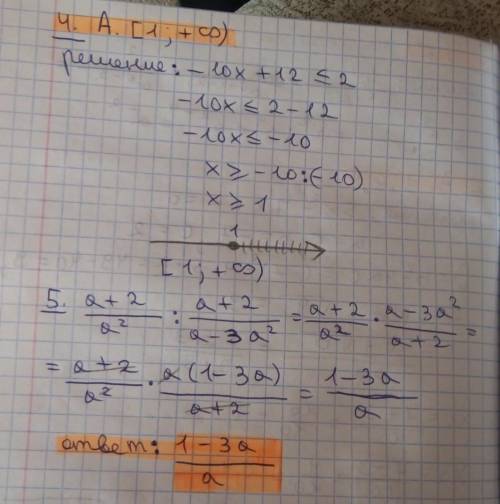 4. А. [1; +∞)
решение: -10x + 12 ≤ 2
-10x ≤ 2 - 12
-10x ≤ -10
x ≥ -10:(-10)
x ≥ 1
1
[1; +∞)
5. a+2/a² : a+2/a-3a² = a+2/a² · a-3a²/a+2 =
= a+2/a² · a(1-3a)/a+2 = 1-3a/a
ответ: 1-3a/a